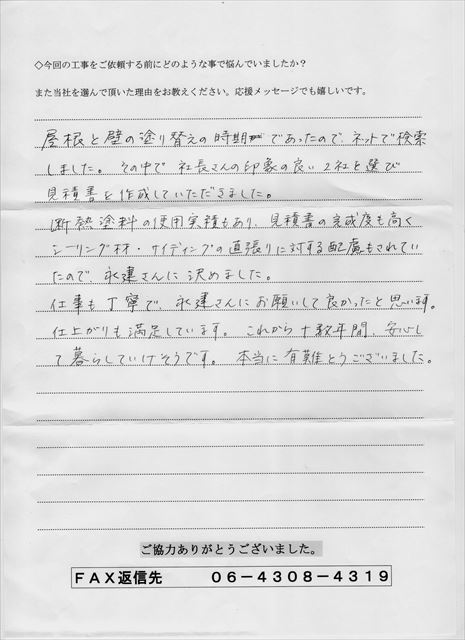 ◇今回の工事をご依頼する前にどのような事で悩んでいましたか？
また当社を選んで頂いた理由をお教えください。応援メッセージでも嬉しいです。
屋根と壁の塗り替えの時期であったので、ネットで検索
しました。その中で社長さんの印象の良い2社を選び
見積書を作成していただきました。
断熱塗料の使用実積もあり、見積書の完成度も高く
シーリング材・サイディングの直張りに対する配慮もされてい
たので、永建さんに決めました。
仕事も丁寧で、永建さんにお願いして良かったと思います。
仕上がりも満足しています。これから十数年間、安心し
て暮らしていけそうです。本当に有難とうございました。
ご協力ありがとうございました。
ＦＡＸ返信先　０６－４３０８－４３１９